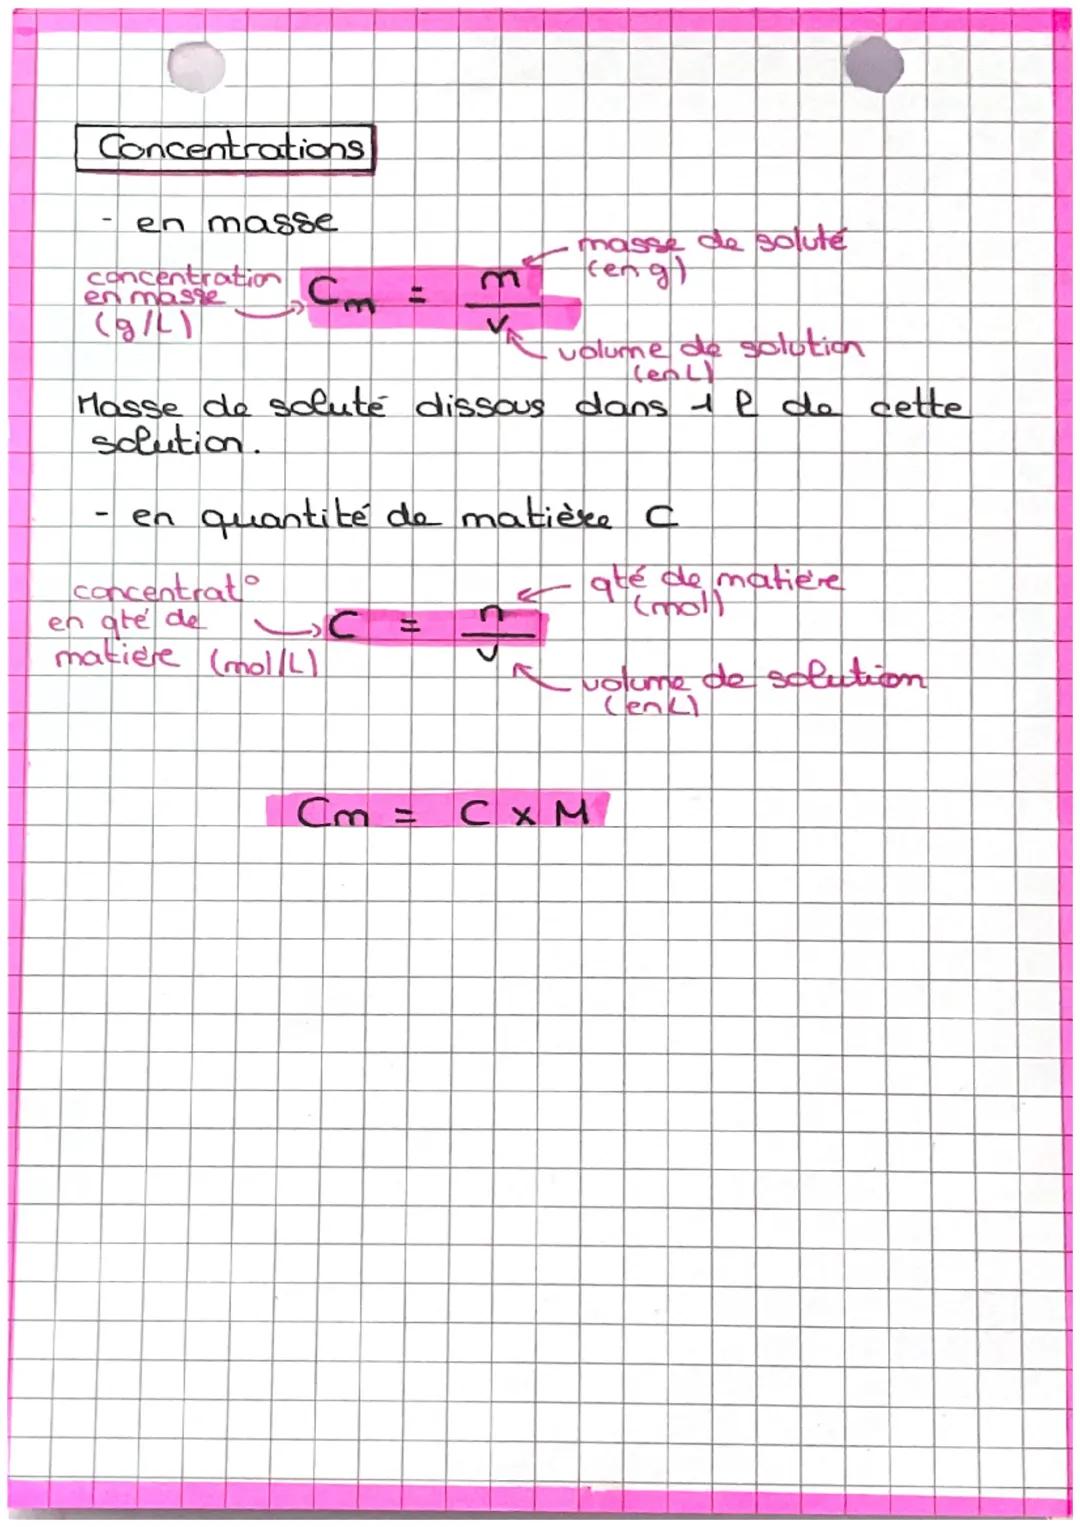 Concentrations
- en masse
masse de soluté
(en g)
concentration
en masse
(g/L)
Cm = m/v
volume de solution
(en L)
Masse de soluté dissous dans 1 l de cette
solution.
- en quantité de matière C
concentrat°
en qté de
matière (mol/L)
C = n/v
qté de matière
(mol)
volume de solution
(en L)
Cm = C x M